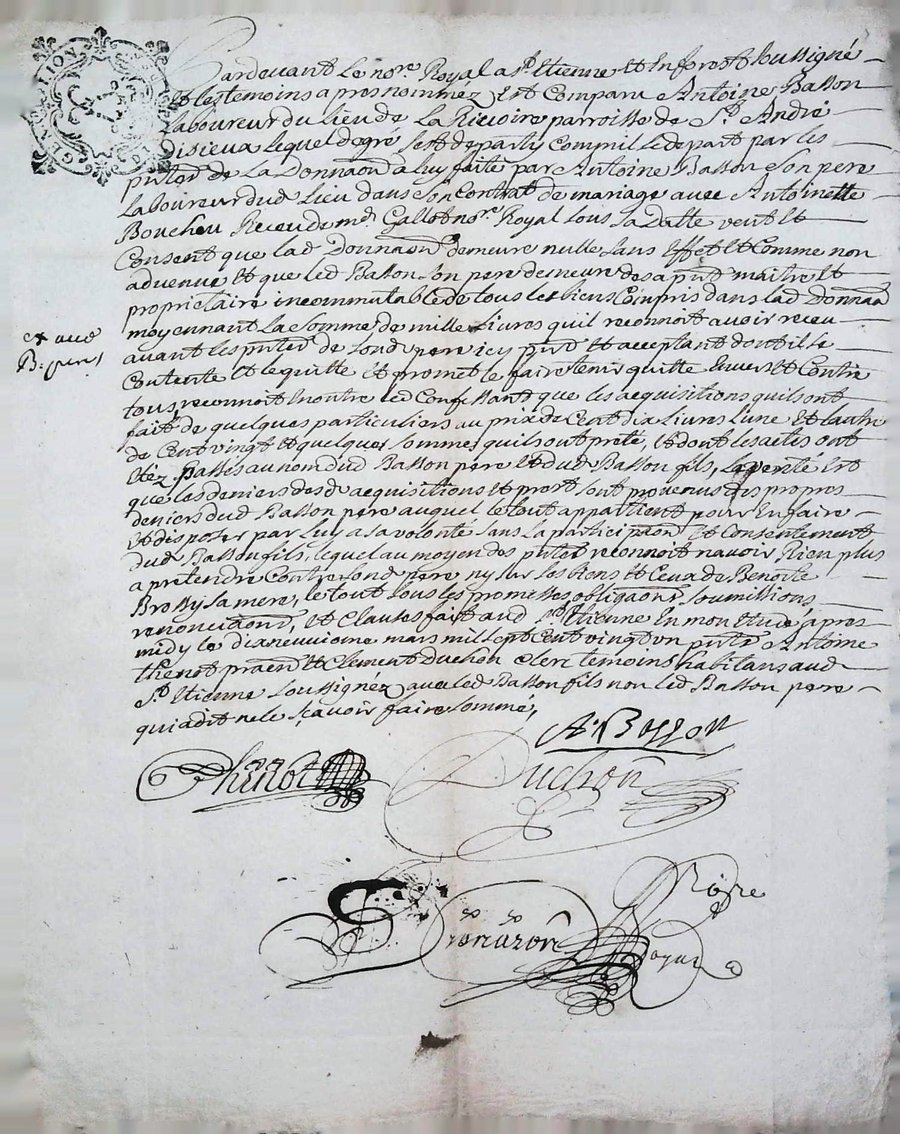 GENERATION
Pardevant Le no.re Royal a S.t Etienne et en forest soussigné
et les temoins apres nommez Est Comparu Antoine Basson
Laboureur du lieu de La Ricoire parroisse de S.t André
lequel degré sest departy Comme il se depart par les
p.ntes de La Donnaon a luy faite par Antoine Basson Son pere
Laboureur dud Lieu dans Son Contrat de mariage avec Antoinette
Boucheu Receu de m.e Gallot no.re Royal sous sa Datte veut et
Consent que lad Donnaon demeure nulle sans Effet et Comme non
advenue et que led Basson Son pere demeure des a p.nt maitre et
proprietaire incommutable de tous les biens Compris dans lad Donnaon
moyennant la somme de mille livres quil reconnoit avoir receu
avant les p.ntes de sond pere icy p.nt et acceptant dont il se
Contente et le quitte et promet le faire tenir quitte Envers et Contre
tous, reconnoit En outre led Confessant que les acquisitions quils ont
fait de quelques particuliers au prix de Cent dix livres lune et lautre
de Cent vingt et quelques sommes quils ont preté, et dont les actes ont
Etez passés au nom dud Basson pere et dud Basson fils, la verité Est
que les deniers desd acquisitions et prest sont provenus des propres
deniers dud Basson pere auquel le tout appartient pour En faire
et disposer par luy a sa volonté sans la participaon et Consentement
dud Basson fils, lequel au moyen des p.ntes reconnoit navoir Rien plus
a pretendre Contre sond pere ny sur ses biens et Ceux de Benoite
Brossy sa mere, le tout sous les promesses obligaons soumissions
renonciaons, et Clauses fait aud S.t Etienne En mon Etude apres
midy le dixneuvieme mars mil sept Cent vingt un p.nts Antoine
thenot praen et Clement Duchon Clerc temoins habitans aud
S.t Etienne Soussignéz avec led Basson fils non led Basson pere
qui a dit ne le sçavoir faire somme,
A. Basson
Thenot
Duchon
No.re
Royal